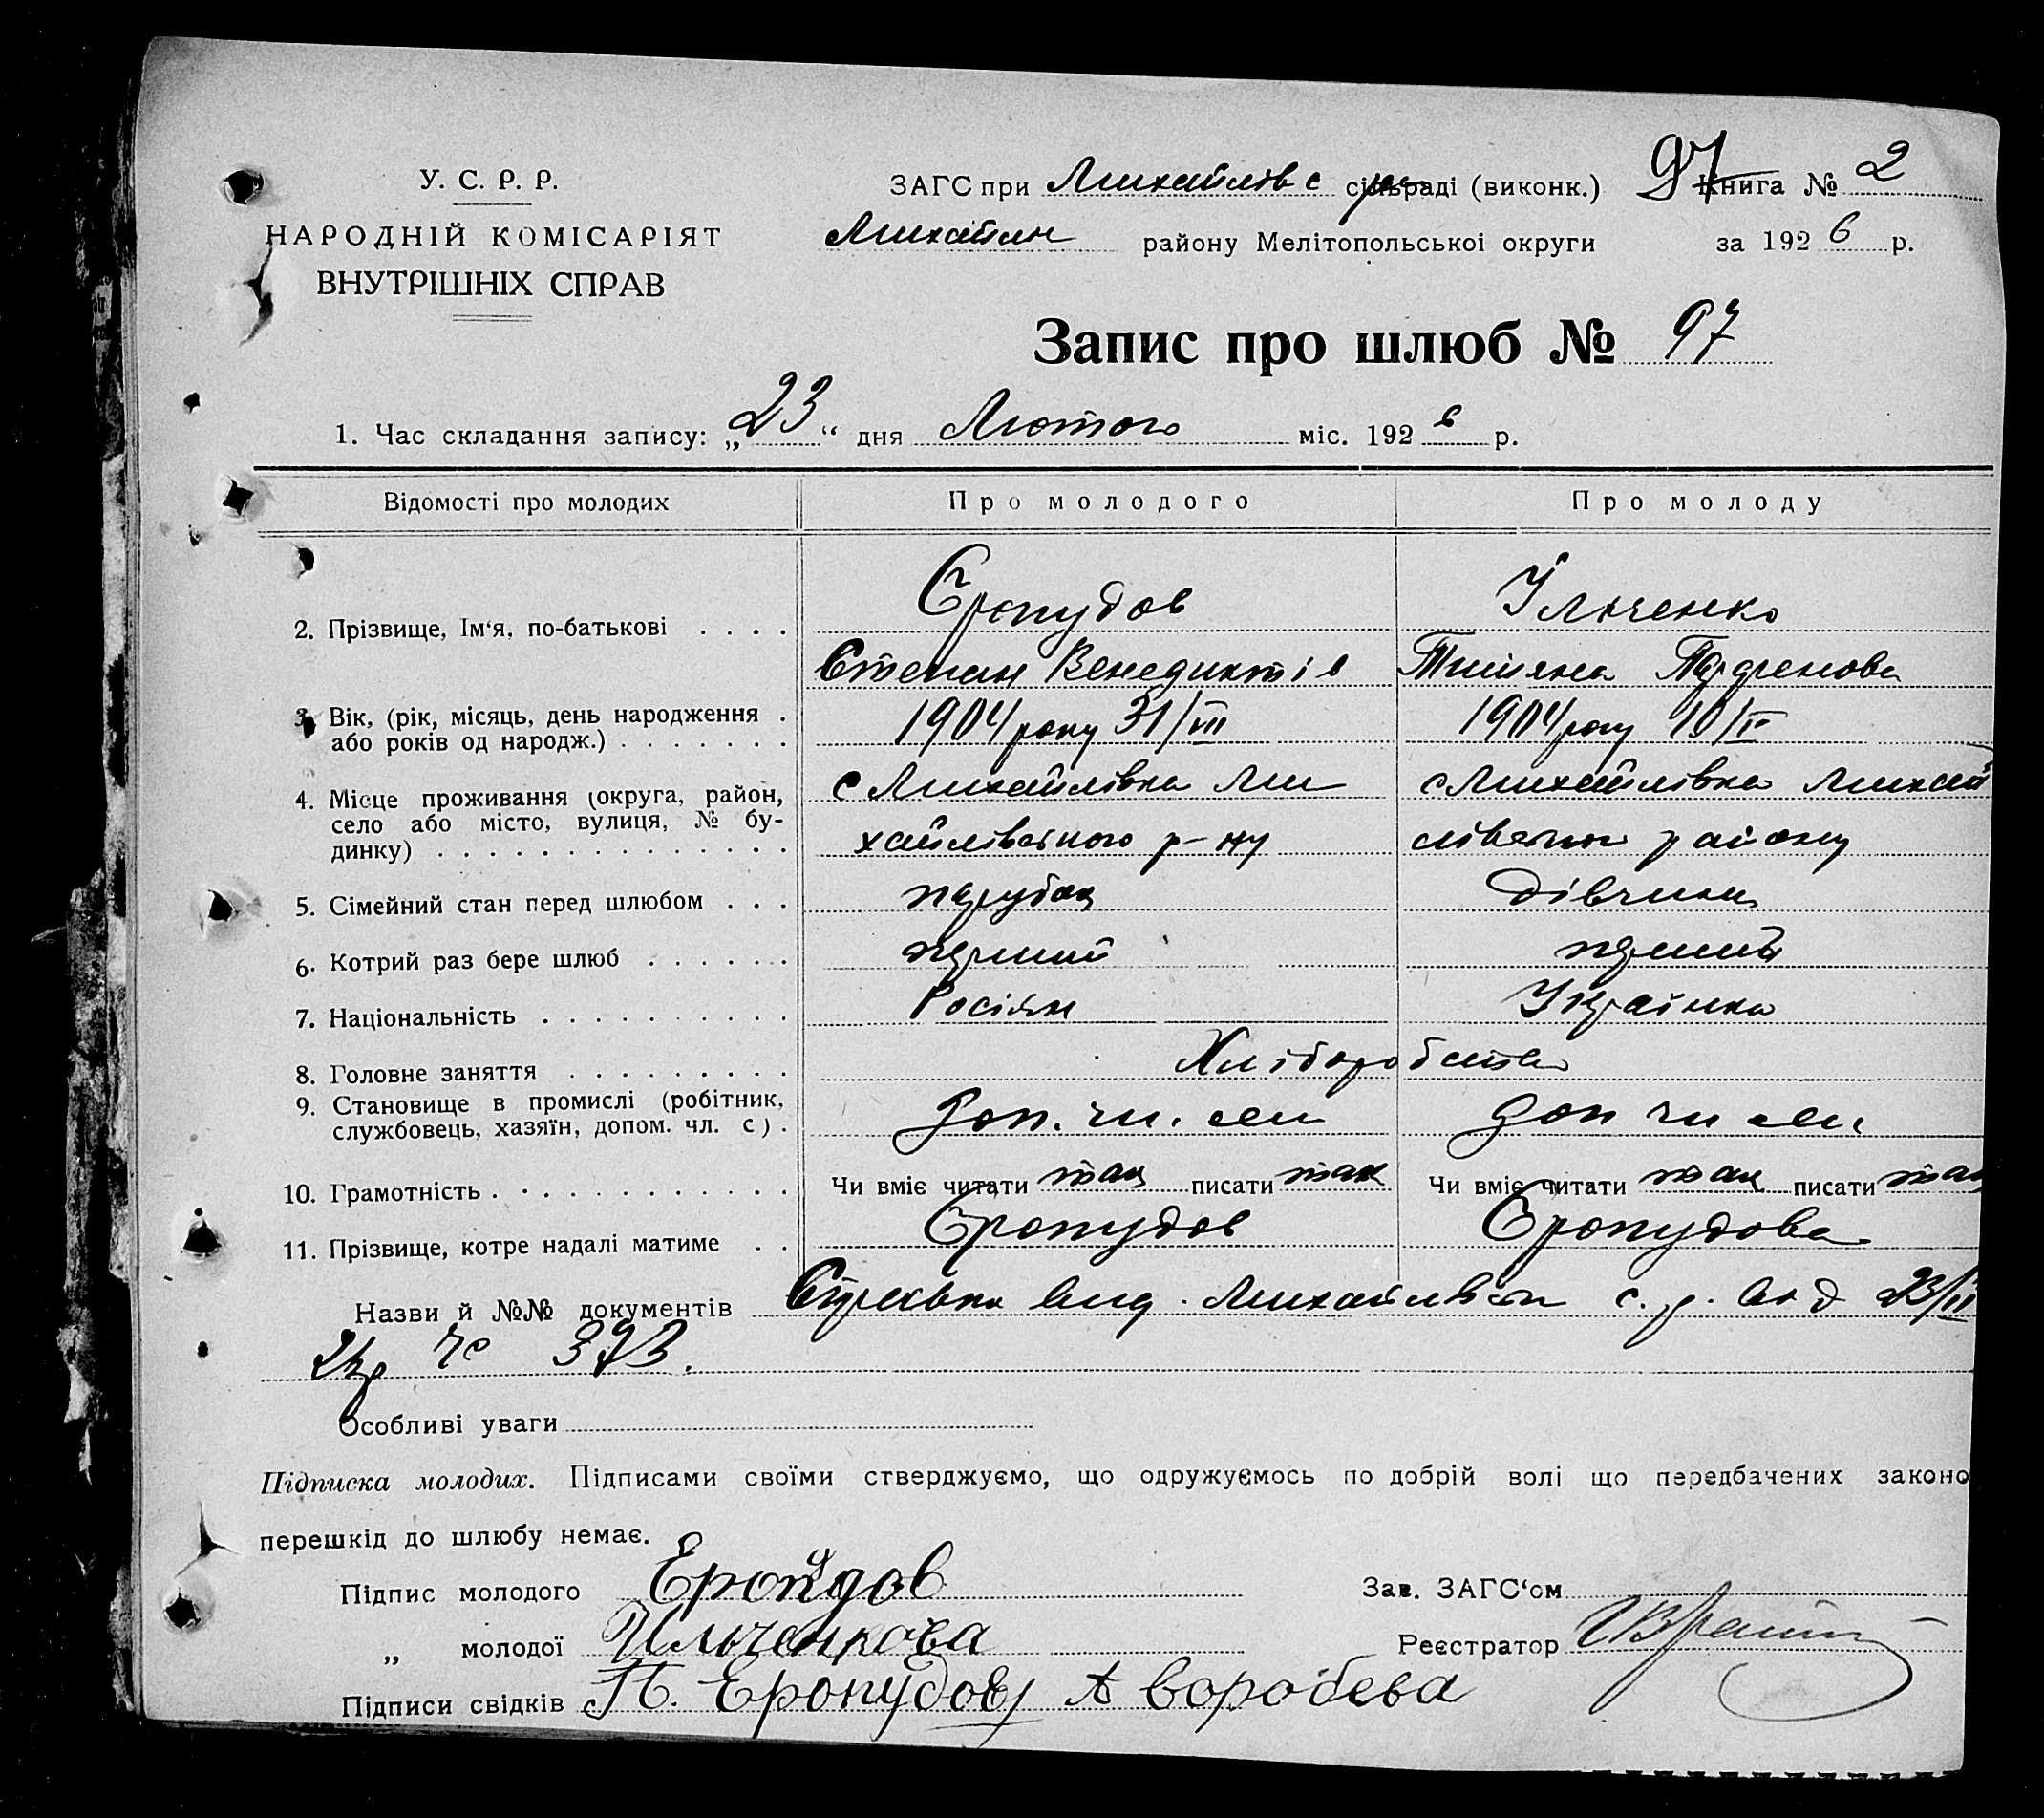 У. С. Р. Р.
НАРОДНІЙ КОМІСАРІЯТ
ВНУТРІШНІХ СПРАВ
ЗАГС при Михайлівс сільраді (виконк.) 97 Книга № 2
Михайлн району Мелітопольської округи за 1926 р.
Запис про шлюб № 97
1. Час складання запису: „23“ дня Лютого міс. 1926 р.
Відомості про молодих Про молодого Про молоду
2. Прізвище, Ім‘я, по-батькові . . . . Єропудов Ільченко
Степан Венедиктів
3. Вік, (рік, місяць, день народження . 1904 року 31/VIII 1904 року 10/II
або років од народж.) . . . . . . .
4. Місце проживання (округа, район, с Михайлівка Ми с Михайлівка Михай
село або місто, вулиця, № бу-
динку) . . . . . . . . . . . . . . хайлівського р-ну лівського району
5. Сімейний стан перед шлюбом . . . парубок дівчина
6. Котрий раз бере шлюб . . . . . . перший перший
7. Національність . . . . . . . . . . Росіян Українка
8. Головне заняття . . . . . . . . . Хліборобство
9. Становище в промислі (робітник, доп. чл. сем доп чл сем
службовець, хазяїн, допом. чл. с) .
10. Грамотність . . . . . . . . . . . . Чи вміє читати так писати так Чи вміє читати так писати так
11. Прізвище, котре надалі матиме . . Єропудов Єропудова
Назви й №№ документів вид. Михайлівск с. р. від 23/II
26 р № 373.
Особливі уваги
Підписка молодих. Підписами своїми стверджуємо, що одружуємось по добрій волі що передбачених законо
перешкід до шлюбу немає.
Підпис молодого Еропудов Зав. ЗАГС‘ом
„ молодої Ильченкова Реєстратор
Підписи свідків П. Еропудов А Воробева